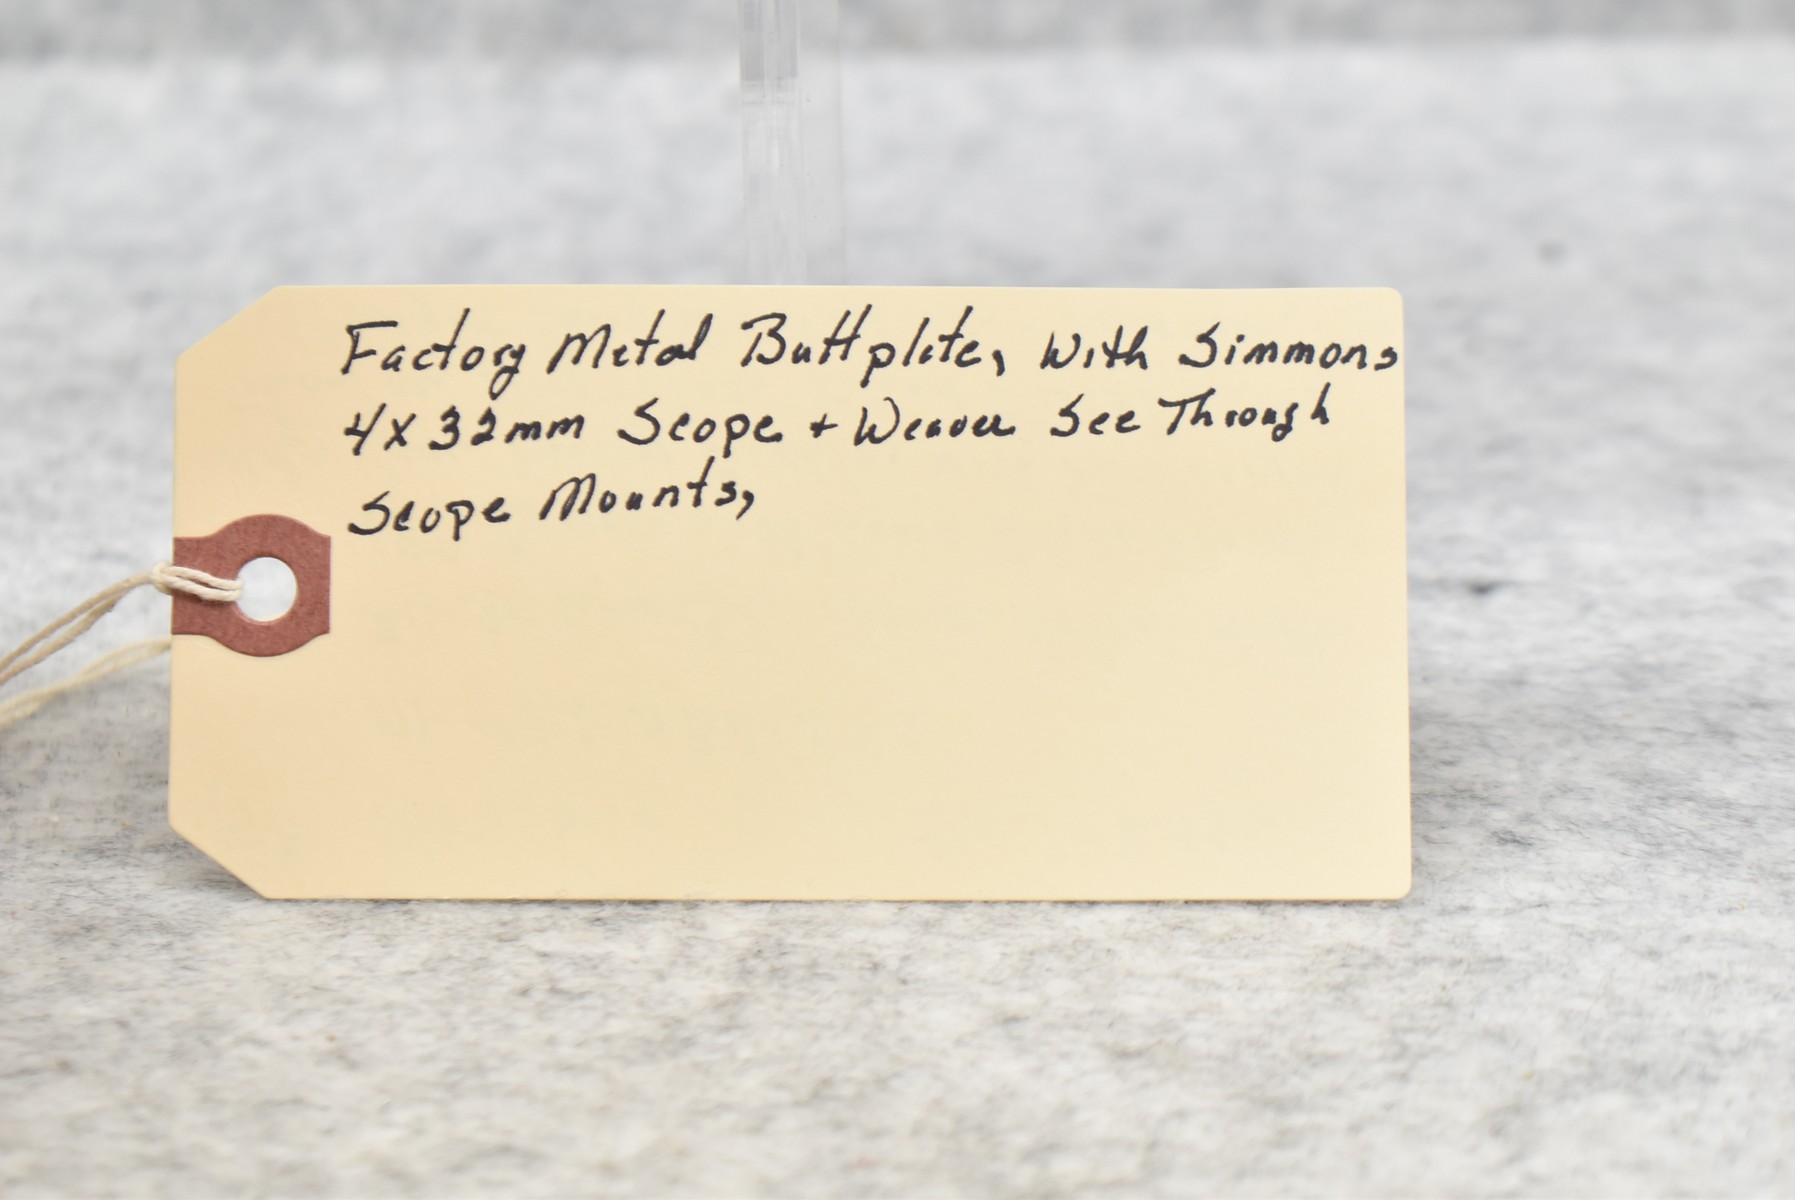 Factory Metal Buttplate, With Simmons
4x32mm Scope + Weaver See Through
Scope Mounts,